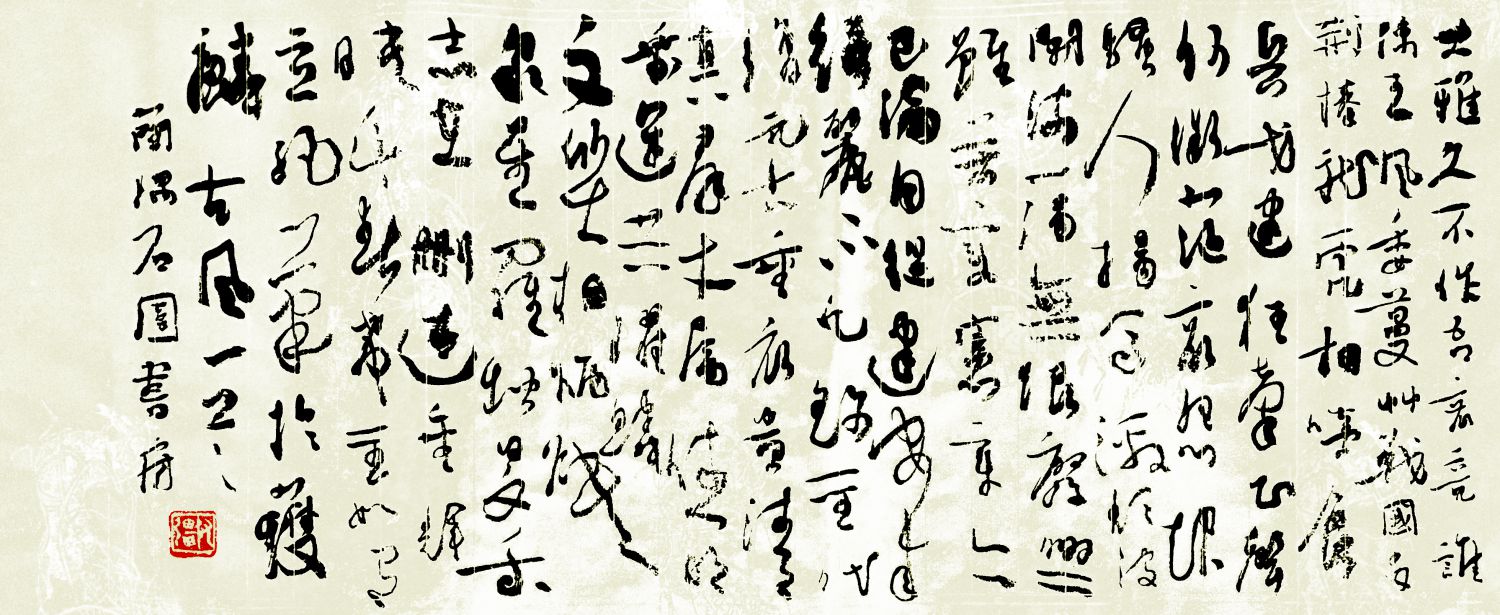 大雅久不作吾衰竟誰
陳王風委蔓艸戰國多
荊榛龍虎相啖食
兵戈逮狂秦正聲
何微茫哀怨起
騷人揚馬激頹波
開流蕩無垠廢興
雖萬變憲章亦
已淪自從建安來
綺麗不足珍聖代
復元古垂衣貴清
真群才屬休明
乘運共躍鱗
文質相炳煥
眾星羅秋旻我
志在刪述垂輝
映千春希聖如有
立絕筆於獲
麟 古風一
石園書房